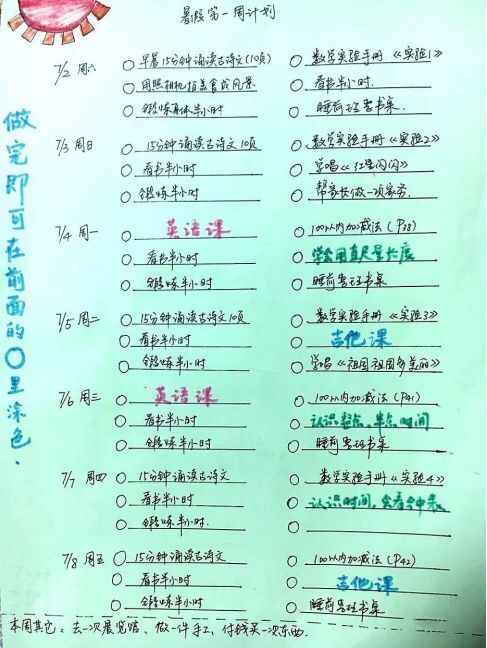 暑假第一周计划
做完即可在前面的○里涂色.
7/2 周六
○早晨15分钟诵读古诗文(10页)
○数学实验手册《实验1》
○用照相机拍美食或风景
○看书半小时.
○锻炼身体半小时
○睡前整书桌.
7/3 周日
○15分钟诵读古诗文10页
○数学实验手册《实验2》
○看书半小时
○学唱《红星闪闪》
○锻炼半小时
○帮家长做一项家务.
7/4 周一
○英语课
○100以内加减法(P38)
○看书半小时
○学会用直尺量长度
○锻炼半小时
○睡前整理书桌
7/5 周二
○15分钟诵读古诗文10页
○数学实验手册《实验3》
○看书半小时
○吉他课
○锻炼半小时
○学唱《祖国祖国多美丽》
7/6 周三
○英语课
○100以内加减法(P41)
○看书半小时
○认识整点、半点时间
○锻炼半小时
○睡前整理书桌
7/7 周四
○15分钟诵读古诗文
○数学实验手册《实验4》
○看书半小时
○认识时间,会看钟表
○锻炼半小时.
○
7/8 周五
○15分钟诵读古诗文
○100以内加减法(P42)
○看书半小时
○吉他课
○锻炼半小时
○睡前整理书桌
本周其它:去一次展览馆、做一件手工、付钱买一次东西.